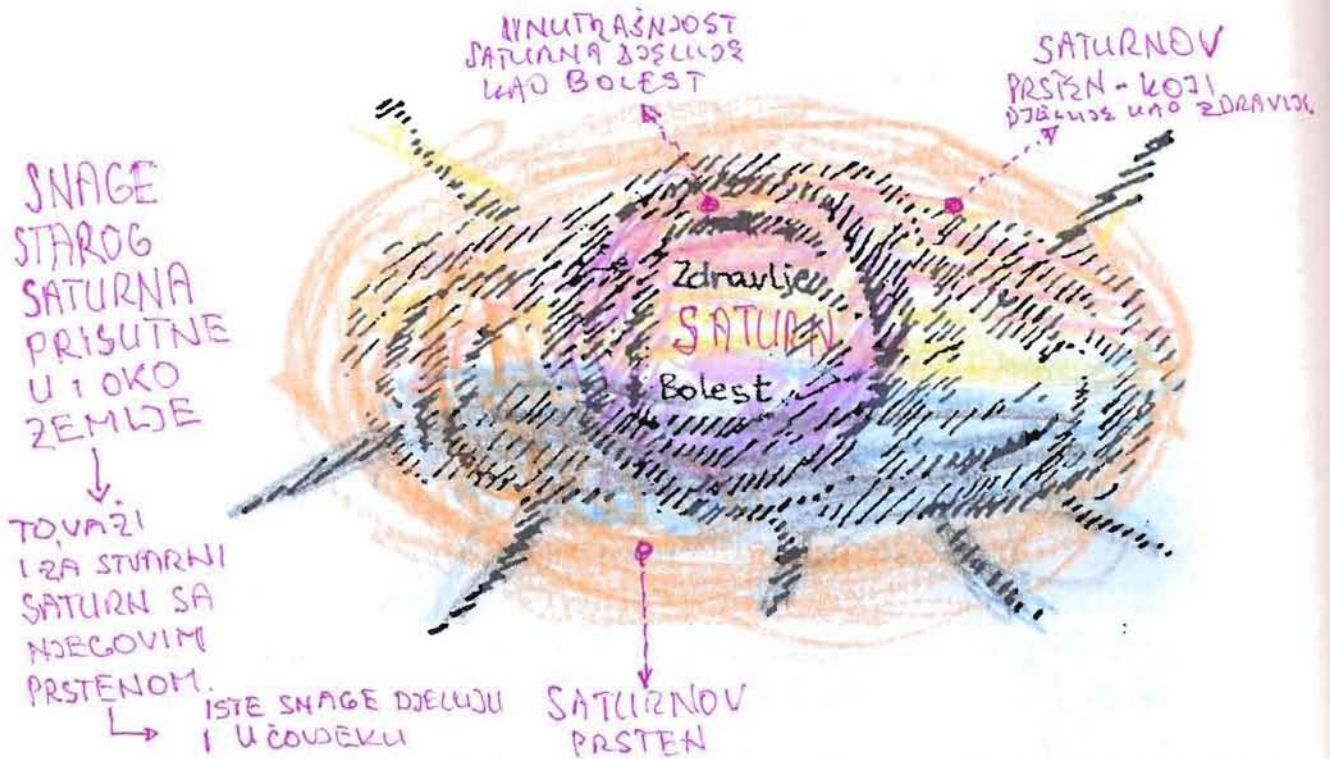 UNUTRAŠNJOST
SATURNA DJELUJE
KAO BOLEST
SATURNOV
PRSTEN - KOJI
DJELUJE KAO ZDRAVLJE
SNAGE
STAROG
SATURNA
PRISUTNE
U I OKO
ZEMLJE
TO VAŽI
I ZA STVARNI
SATURN SA
NJEGOVIM
PRSTENOM.
ISTE SNAGE DJELUJU
I U ČOVJEKU
Zdravlje
SATURN
Bolest
SATURNOV
PRSTEN